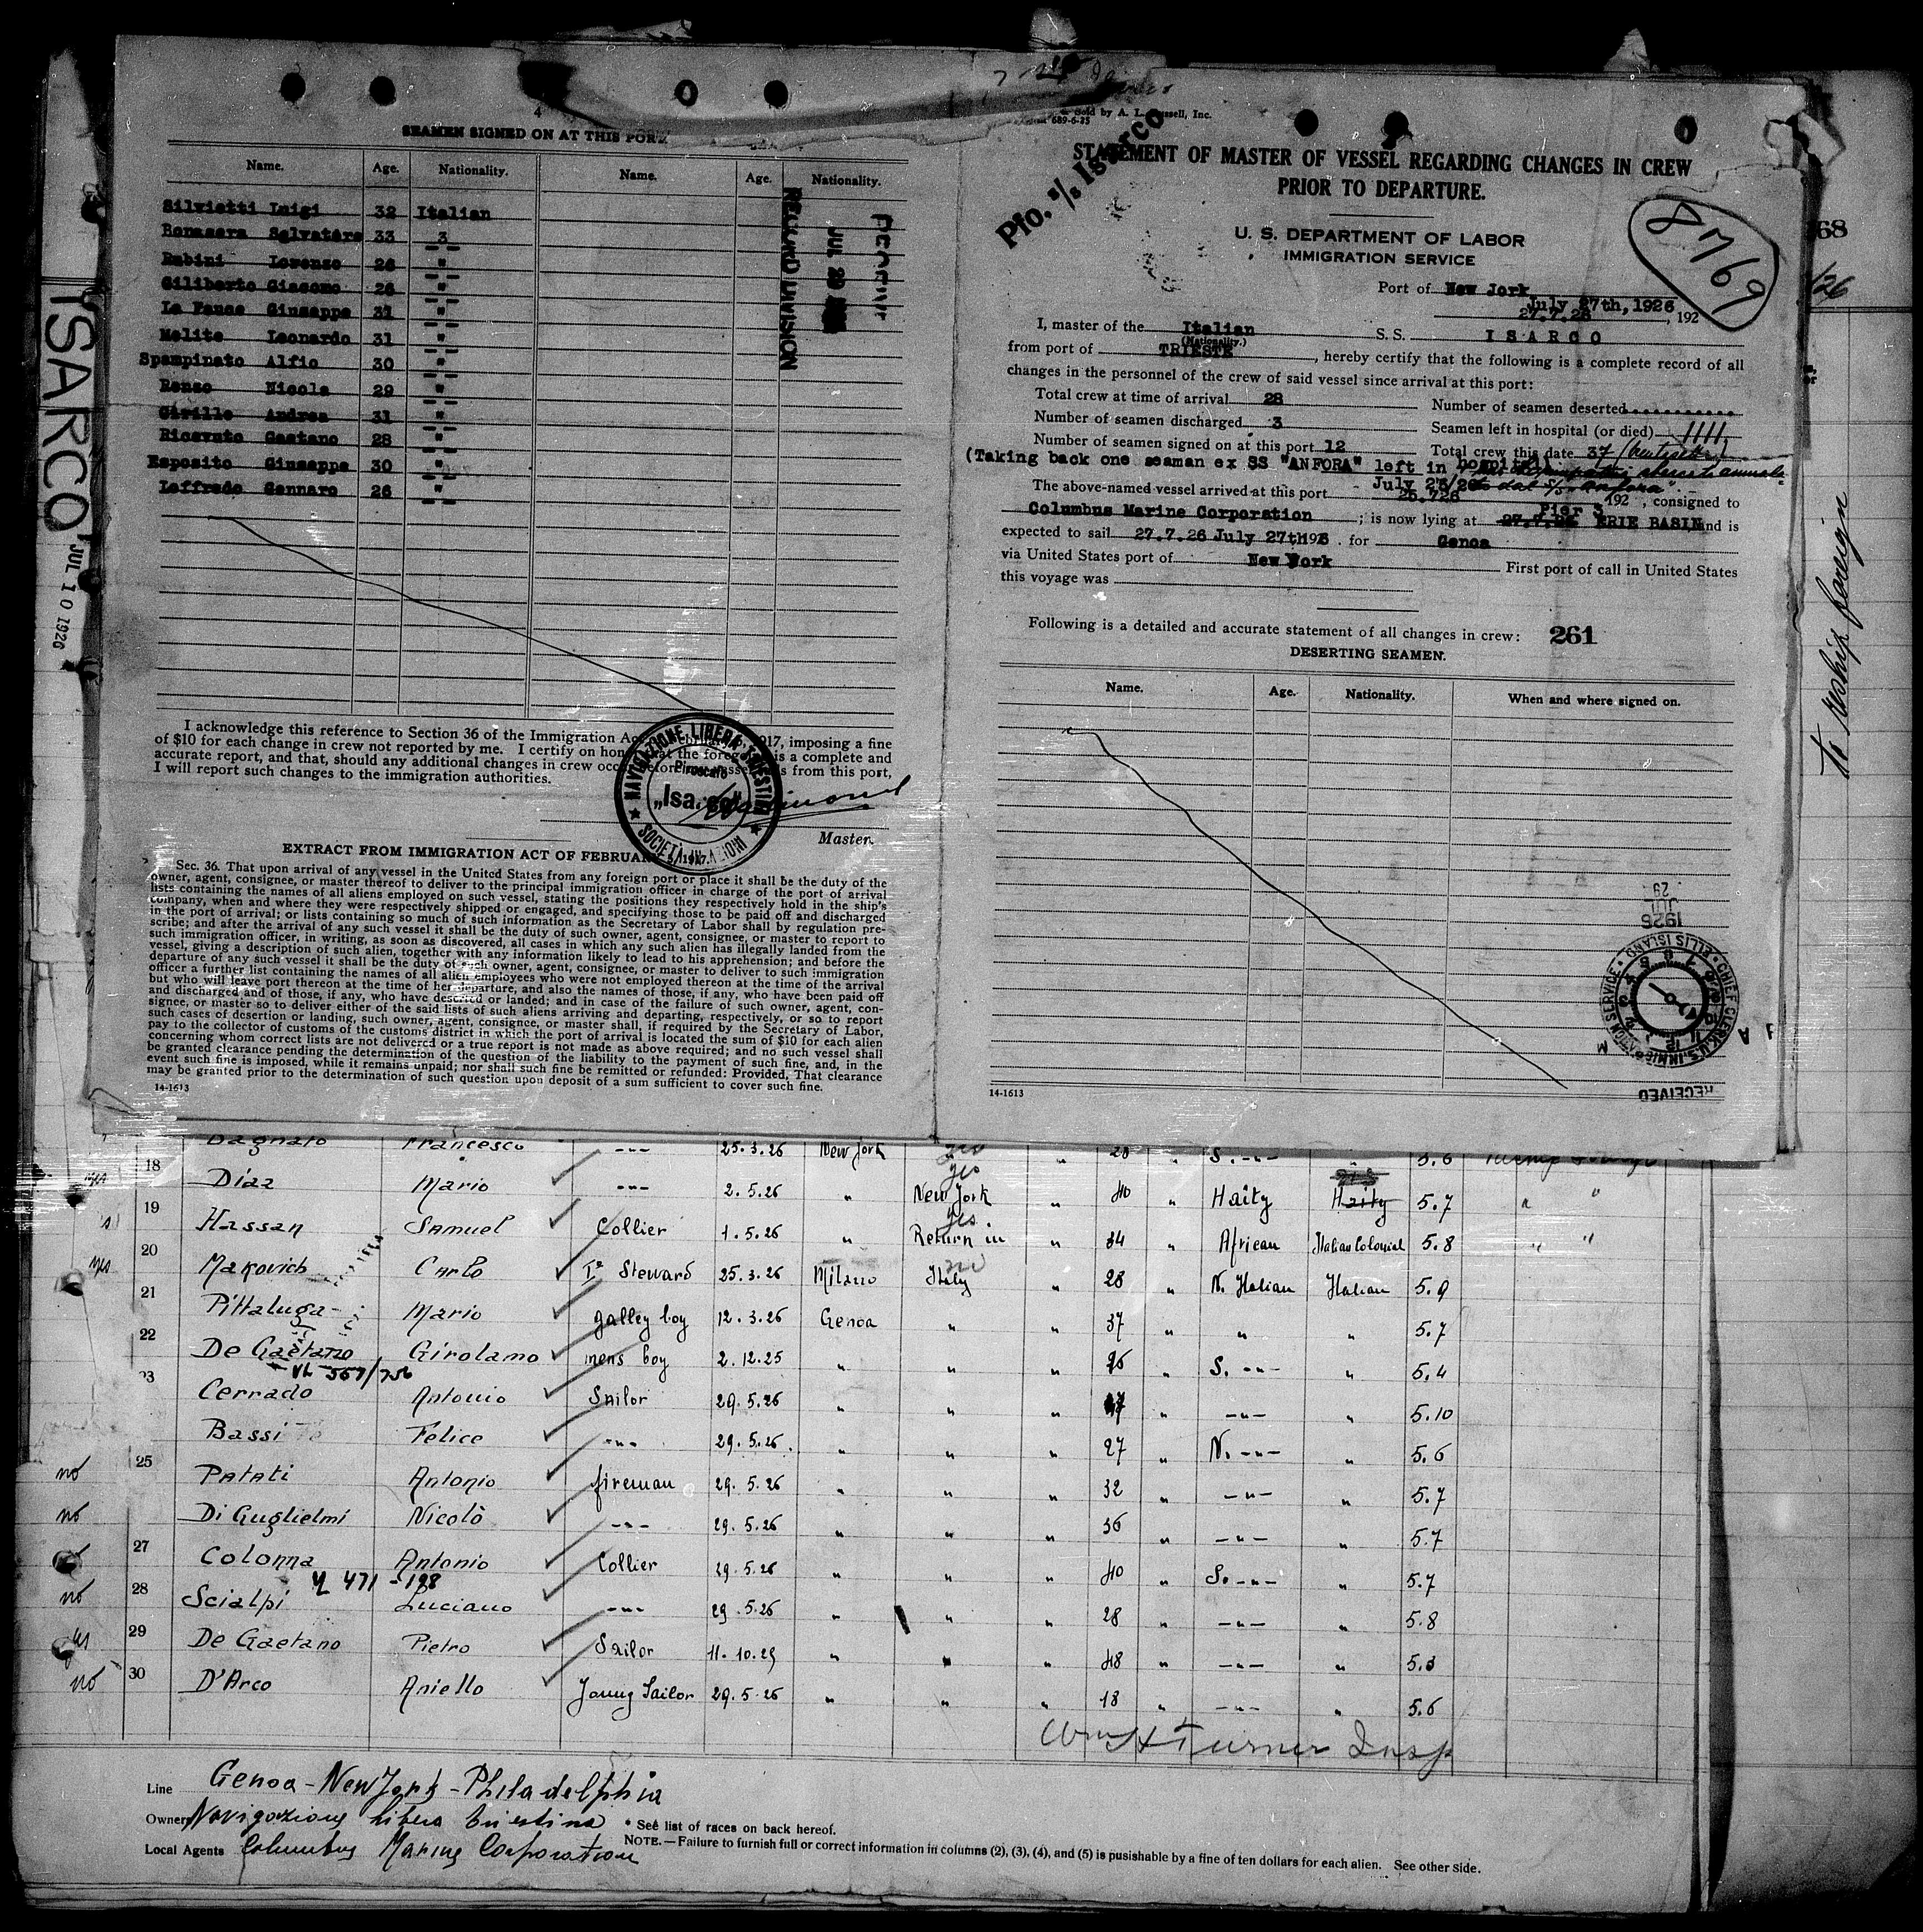 4
SEAMEN SIGNED ON AT THIS PORT
Name. Age. Nationality. Name. Age. Nationality.
Silvietti Luigi 32 Italian
Bonasera Salvatore 33 3
Rubini Lorenzo 26 "
Giliberto Giacomo 26 "
La Fauce Giuseppe 31 "
Melite Leonardo 31 "
Spampinato Alfio 30 "
Renzo Nicola 29 "
Cirillo Andrea 31 "
Ricevuto Gaetano 28 "
Esposito Giuseppe 30 "
Leffredo Gennaro 26 "
RECORD DIVISION
JUL 29
I acknowledge this reference to Section 36 of the Immigration 1917, imposing a fine
of $10 for each change in crew not reported by me. I certify on that the is a complete and
accurate report, and that, should any additional changes in crew from this port,
I will report such changes to the immigration authorities.
NAVIGAZIONE LIBERA TRIESTINA
Piroscafo
„Isarco"
Master.
EXTRACT FROM IMMIGRATION ACT OF FEBRUARY 5, 1917.
Sec. 36. That upon arrival of any vessel in the United States from any foreign port or place it shall be the duty of the
owner, agent, consignee, or master thereof to deliver to the principal immigration officer in charge of the port of arrival
lists containing the names of all aliens employed on such vessel, stating the positions they respectively hold in the ship's
company, when and where they were respectively shipped or engaged, and specifying those to be paid off and discharged
in the port of arrival; or lists containing so much of such information as the Secretary of Labor shall by regulation pre-
scribe; and after the arrival of any such vessel it shall be the duty of such owner, agent, consignee, or master to report to
such immigration officer, in writing, as soon as discovered, all cases in which any such alien has illegally landed from the
vessel, giving a description of such alien, together with any information likely to lead to his apprehension; and before the
departure of any such vessel it shall be the duty of such owner, agent, consignee, or master to deliver to such immigration
officer a further list containing the names of all alien employees who were not employed thereon at the time of the arrival
but who will leave port thereon at the time of her departure, and also the names of those, if any, who have been paid off
and discharged and of those, if any, who have deserted or landed; and in case of the failure of such owner, agent, con-
signee, or master so to deliver either of the said lists of such aliens arriving and departing, respectively, or so to report
such cases of desertion or landing, such owner, agent, consignee, or master shall, if required by the Secretary of Labor,
pay to the collector of customs of the customs district in which the port of arrival is located the sum of $10 for each alien
concerning whom correct lists are not delivered or a true report is not made as above required; and no such vessel shall
be granted clearance pending the determination of the question of the liability to the payment of such fine, and, in the
event such fine is imposed, while it remains unpaid; nor shall such fine be remitted or refunded: Provided, That clearance
may be granted prior to the determination of such question upon deposit of a sum sufficient to cover such fine.
14-1613
ISARCO JUL 10 1926
Sold by A. L. Russell, Inc.
689-6-25
Pfo. s/s Isarco
STATEMENT OF MASTER OF VESSEL REGARDING CHANGES IN CREW
PRIOR TO DEPARTURE.
U. S. DEPARTMENT OF LABOR
IMMIGRATION SERVICE
8769
Port of New York
July 27th, 1926
27.7.26, 192
I, master of the Italian S. S. ISARCO
(Nationality.)
from port of TRIESTE, hereby certify that the following is a complete record of all
changes in the personnel of the crew of said vessel since arrival at this port:
Total crew at time of arrival 28 Number of seamen deserted
Number of seamen discharged 3 Seamen left in hospital (or died) ////
Number of seamen signed on at this port 12 Total crew this date 37
(Taking back one seaman ex SS "ANFORA" left in hospital)
The above-named vessel arrived at this port July 25/26 192, consigned to
Columbus Marine Corporation; is now lying at Pier 3 ERIE BASIN and is
expected to sail 27.7.26 July 27th 1926. for Genoa
via United States port of New York First port of call in United States
this voyage was
Following is a detailed and accurate statement of all changes in crew: 261
DESERTING SEAMEN.
Name. Age. Nationality. When and where signed on.
29
JUL
1926
CHIEF CLERK U.S. IMMIGRATION SERVICE ELLIS ISLAND
RECEIVED
14-1613
68
/26
To reship foreign
Bagnato Francesco --- 25.3.26 New York yes " 28 " S. -"- 5.6
18 yes Diaz Mario --- 2.5.26 " New York yes " 40 " Haity Haity 5.7 " "
19 Hassan Samuel Collier 1.5.26 " Return in yes " 34 " African Italian Colonial 5.8 " "
20 yes Makovich Carlo I° Steward 25.3.26 Milano Italy " 28 " N. Italian Italian 5.9
21 Pittaluga Mario galley boy 12.3.26 Genoa " " 37 " " " 5.7
22 De Gaetano Girolamo mens boy 2.12.25 " " " 26 " S. -"- " 5.4
VL 567/756
23 Cerrado Antonio Sailor 29.5.26 " " " " -"- " 5.10
Bassi Felice -"- 29.5.26. " " " 27 " N. -"- " 5.6
25 no Patati Antonio fireman 29.5.26 " " " 32 " -"- " 5.7
no Di Guglielmi Nicolò --- 29.5.26 " " " 36 " -"- " 5.7
27 Colonna Antonio Collier 29.5.26 " " " 40 " S. -"- " 5.7
471-198
28 no Scialpi Luciano --- 29.5.26 " " " 28 " -"- " 5.8
29 yes De Gaetano Pietro Sailor 11.10.25 " " " 48 " -"- " 5.3
30 no D'Arco Aniello Young Sailor 29.5.26 " " " 18 " -"- " 5.6
Wm H Turner Insp
Line Genoa - New York - Philadelphia
Owner Navigazione Libera Triestina * See list of races on back hereof.
Local Agents Columbus Marine Corporation NOTE.—Failure to furnish full or correct information in columns (2), (3), (4), and (5) is pusishable by a fine of ten dollars for each alien. See other side.